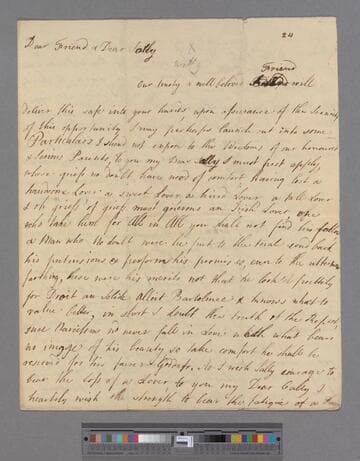 24
Dear Friend & Dear Sally
Our trusty & well belov'd Friend will
deliver this safe into your hands, upon assurance of the security
of this opportunity I may perhaps launch out into some
Particulars I should not expose to the Wisdoms of our honoured
& serious Parents, to you my Dear Sally I must first apply,
whose grief no doubt have need of comfort having lost a
handsome Lover a sweet Lover a kind Lover, a tall Lover
& oh grief of griefs most generous an Irish Lover, one
who take him for All in All you shall not find his fellow
a Man who No doubt were he just to the would send back
his pretensions or perform his promises, even to the uttermost
farthing, these were his merits not that he look'd prettily
for Dight an Solide & knows what to
value better, in short I doubt the truth of the Report,
since never fall in Love with what bears
no image of his beauty, so take comfort he shall be
reserved for his fairer . As I wish Sally courage to
bear the loss of a Lover to you my Dear I
heartily wish the strength to bear the fatigue of a